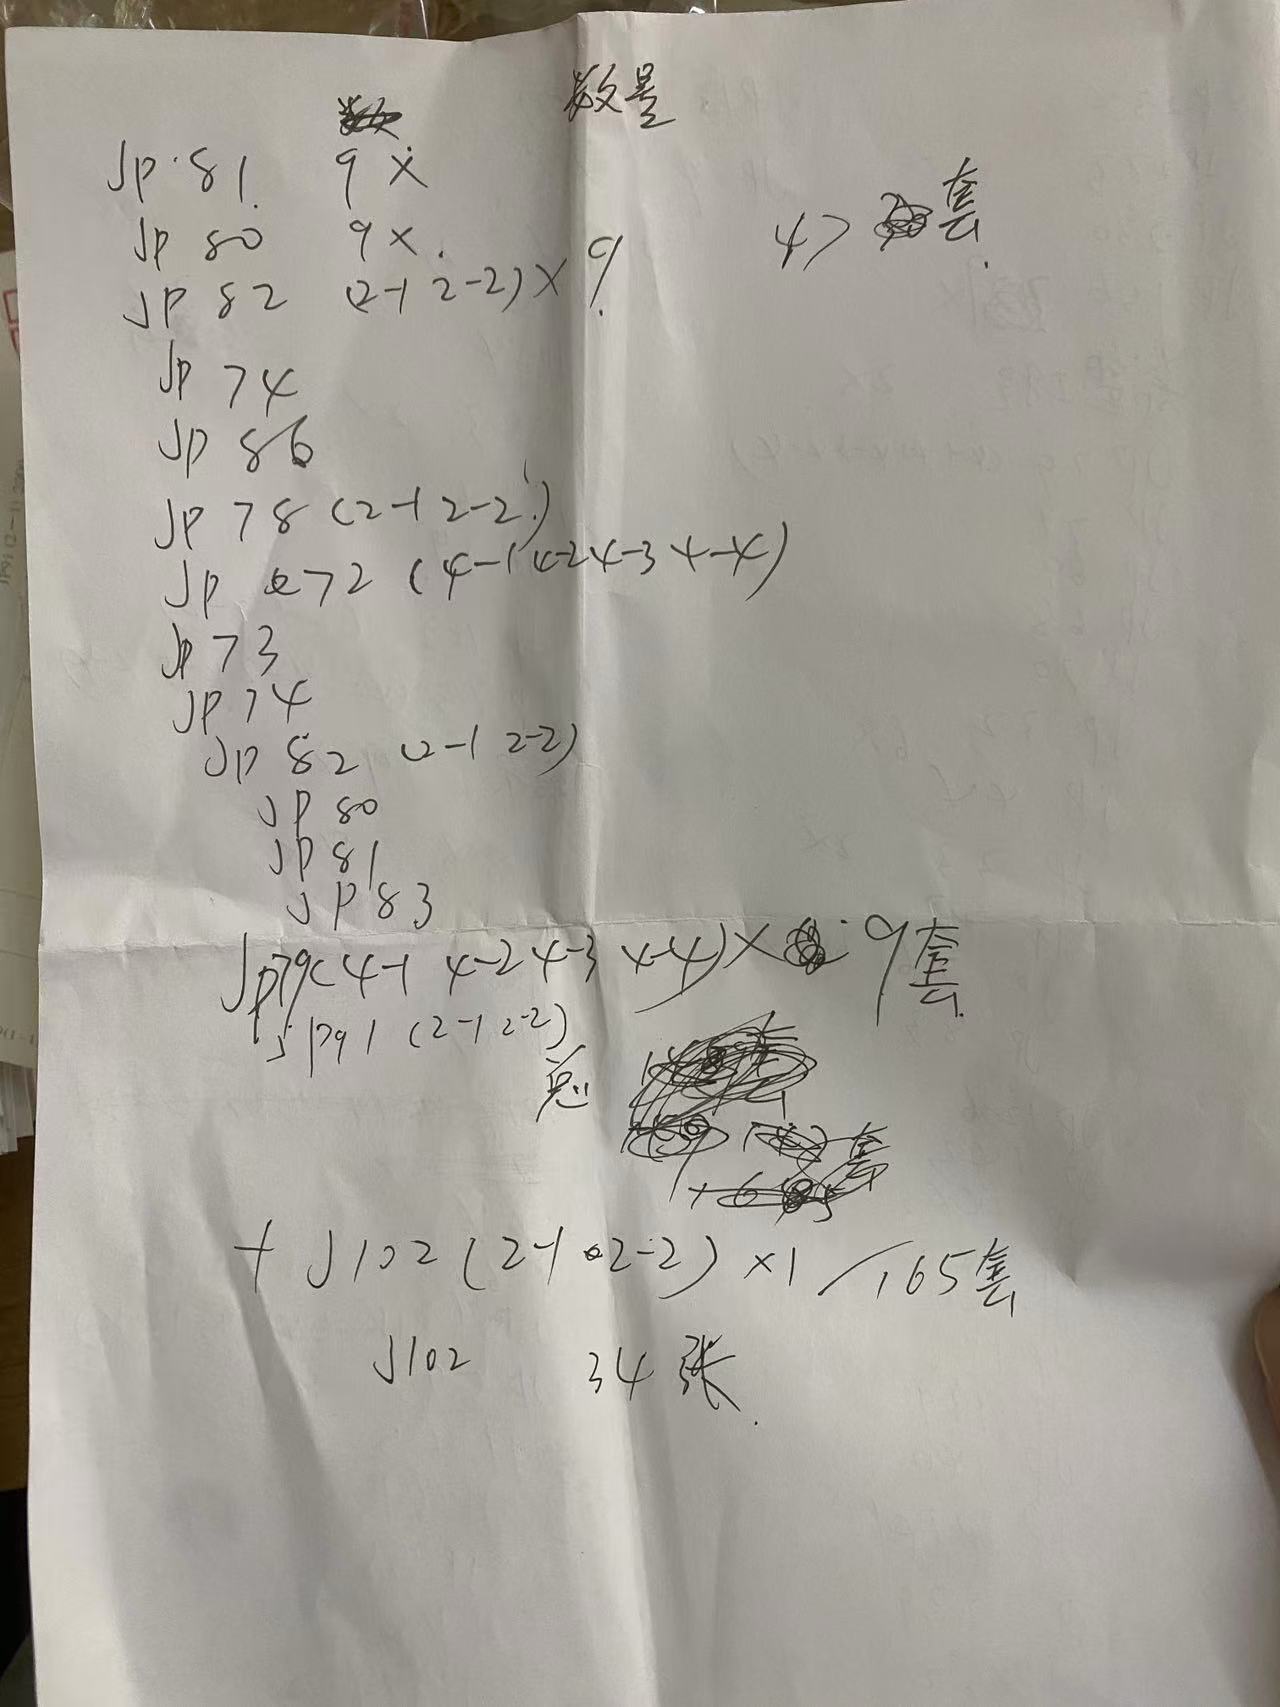 数量
JP 81. 9 ×
JP 80 9 ×.
47 套.
JP 82 (2-1 2-2) × 9.
JP 74
JP 86
JP 78 (2-1 2-2)
JP 72 (4-1 4-2 4-3 4-4)
JP 73
JP 74
JP 82 (2-1 2-2)
JP 80
JP 81
JP 83
JP79(4-1 4-2 4-3 4-4) × 9套.
JP91 (2-1 2-2)
总
+ J102 (2-1 2-2) ×1 165套
J102 34 张.